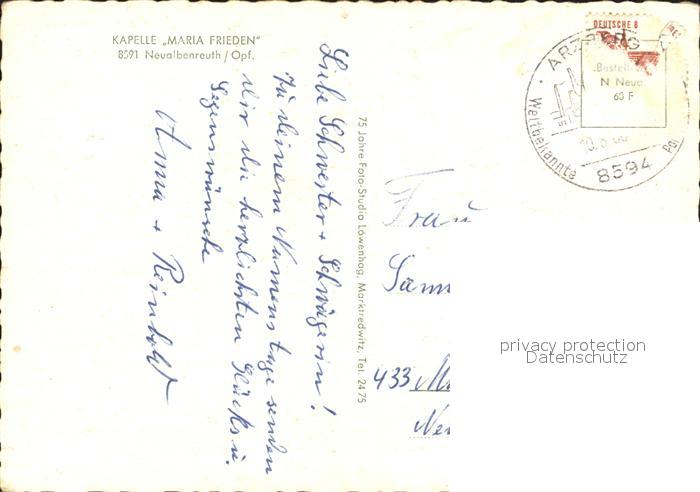 KAPELLE „MARIA FRIEDEN"
8591 Neualbenreuth / Opf.
Liebe Schwester + Schwägerin!
Zu deinem Namenstage senden
dir die herzlichsten Glücks u.
Segenswünsche
Anna + Reinhold
75 Jahre Foto-Studio Löwenhag, Marktredwitz, Tel. 2475
DEUTSCHE B
ARZBERG
Weltbekannte
8594
Bestell
N Neua
60 F
Frau
433 M
privacy protection
Datenschutz